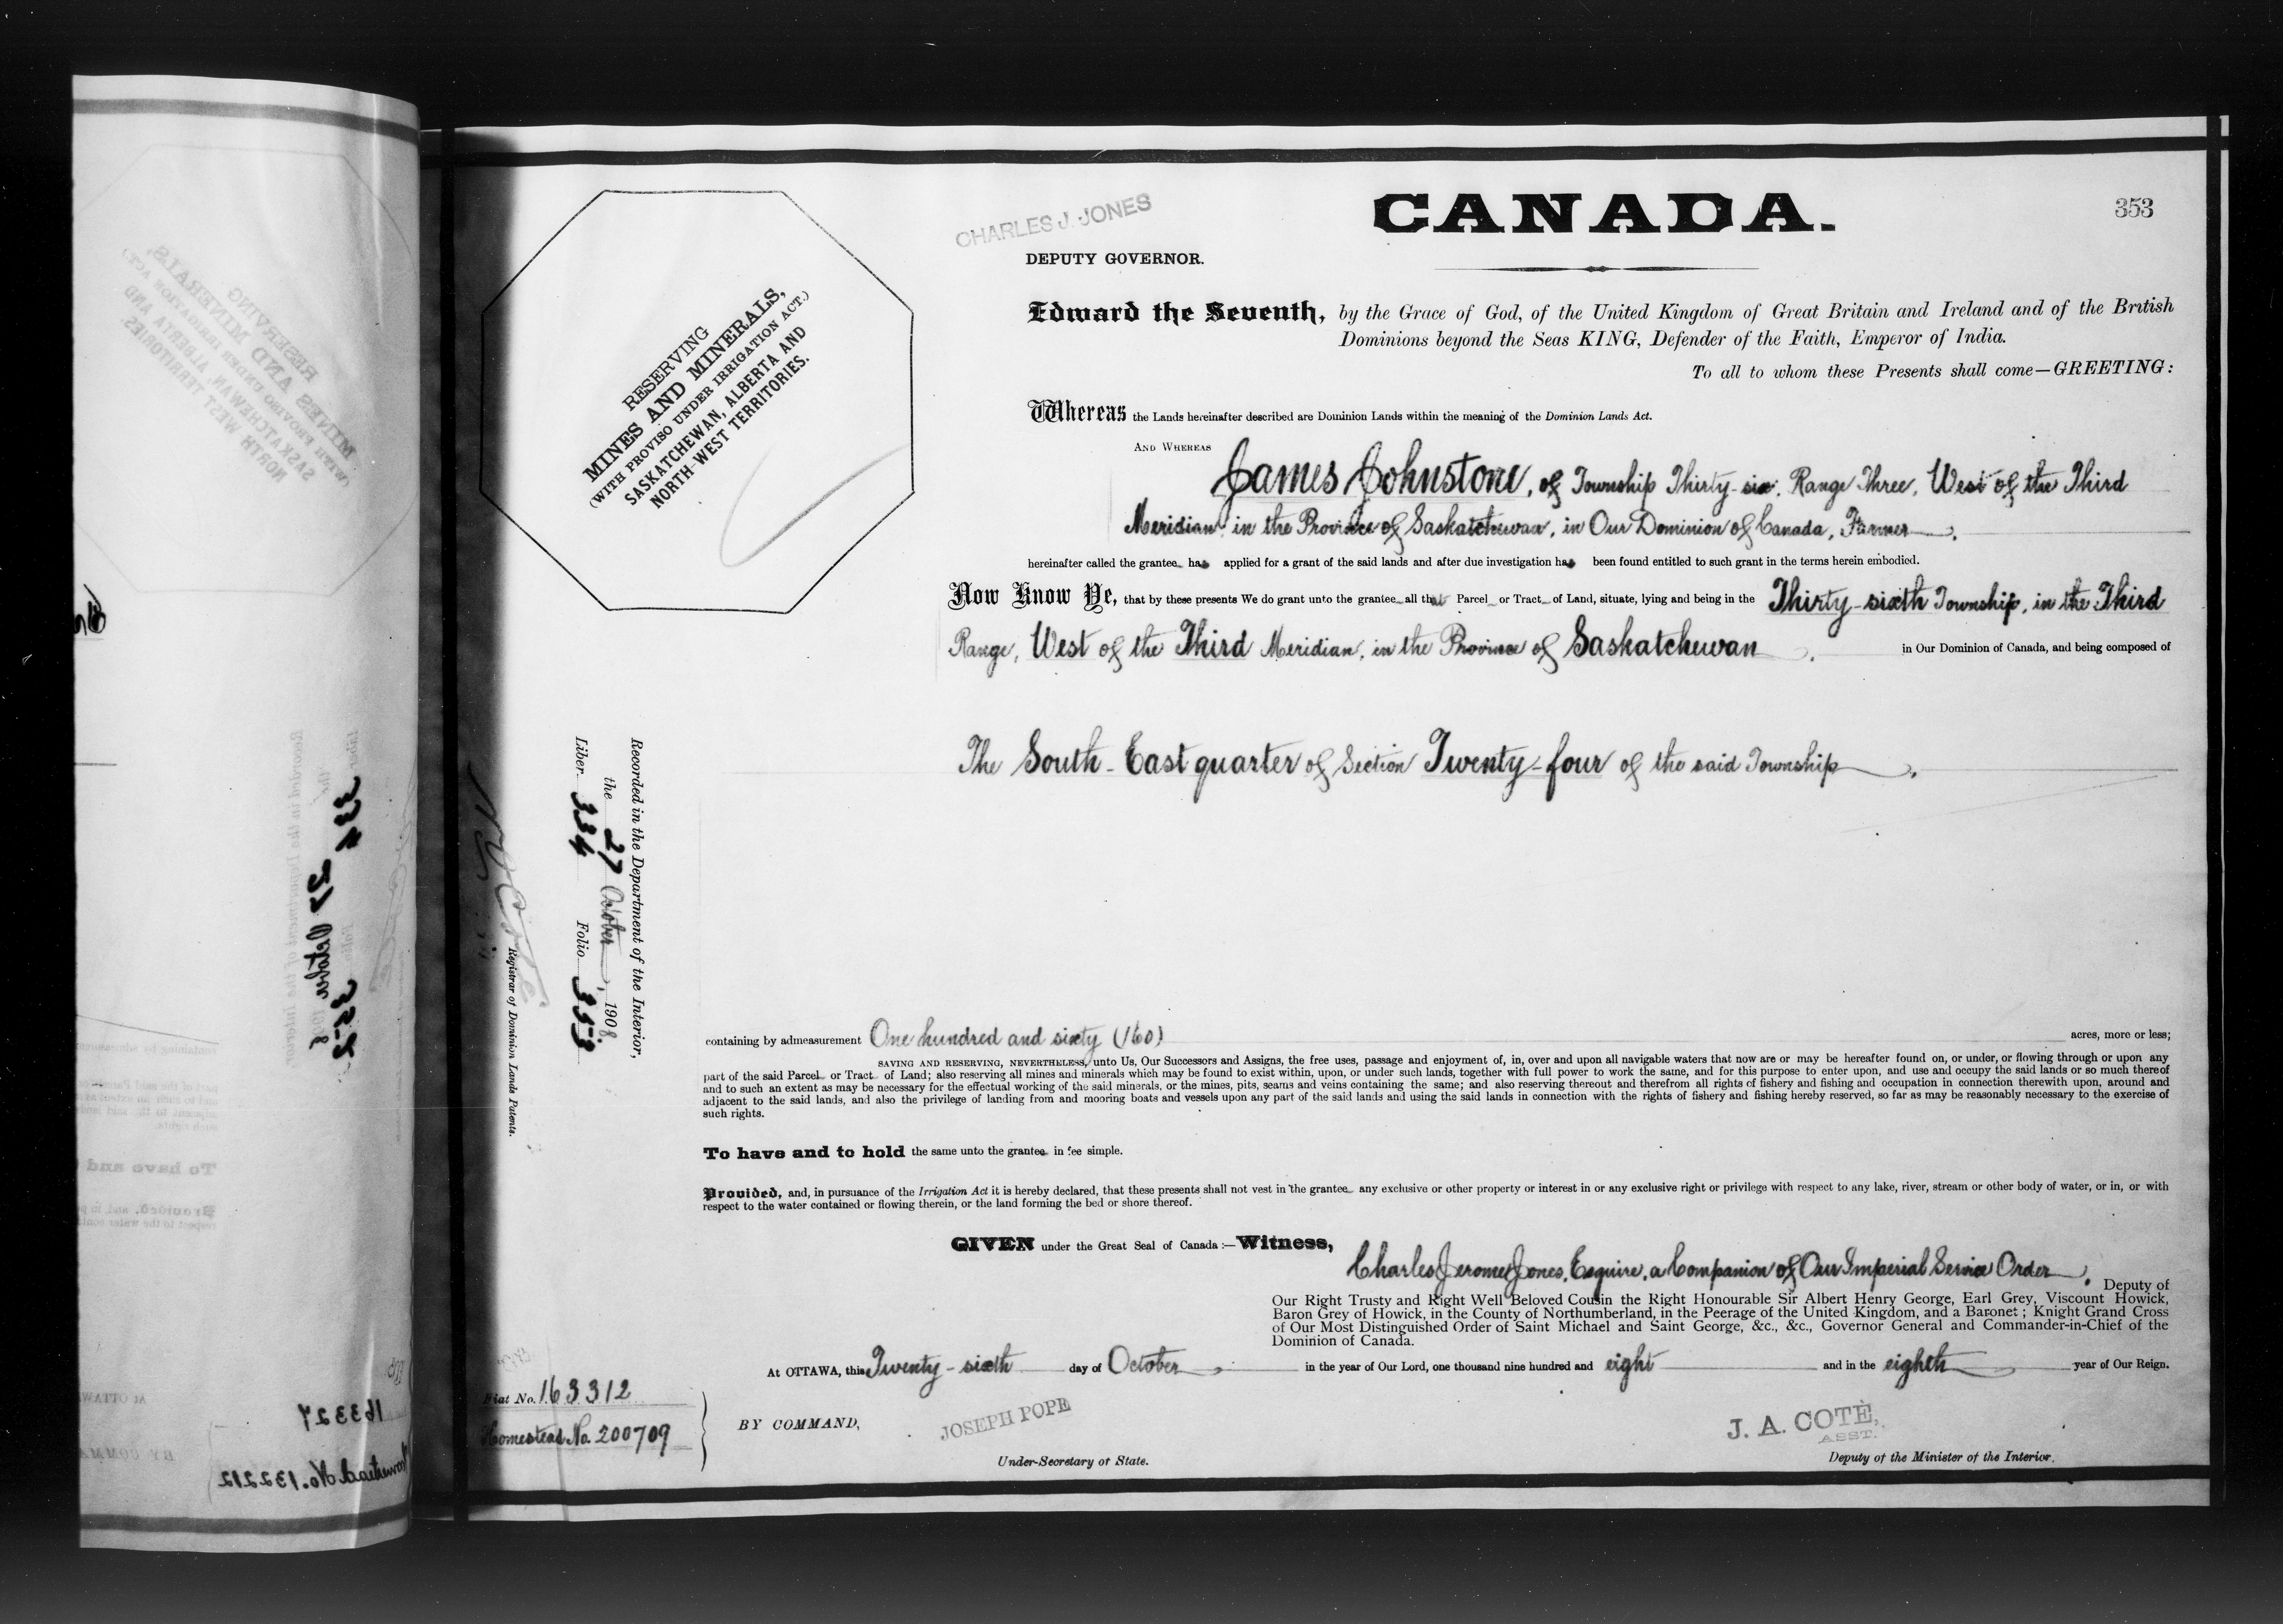 CANADA.
353
CHARLES J. JONES
DEPUTY GOVERNOR.
RESERVING
MINES AND MINERALS,
(WITH PROVISO UNDER IRRIGATION ACT.)
SASKATCHEWAN, ALBERTA AND
NORTH-WEST TERRITORIES.
Edward the Seventh, by the Grace of God, of the United Kingdom of Great Britain and Ireland and of the British
Dominions beyond the Seas KING, Defender of the Faith, Emperor of India.
To all to whom these Presents shall come—GREETING:
Whereas the Lands hereinafter described are Dominion Lands within the meaning of the Dominion Lands Act.
AND WHEREAS
James Johnstone, of Township Thirty-six, Range Three, West of the Third
Meridian, in the Province of Saskatchewan, in Our Dominion of Canada, Farmer.
hereinafter called the grantee has applied for a grant of the said lands and after due investigation has been found entitled to such grant in the terms herein embodied.
Now Know Ye, that by these presents We do grant unto the grantee all that Parcel or Tract of Land, situate, lying and being in the Thirty-sixth Township, in the Third
Range, West of the Third Meridian, in the Province of Saskatchewan, in Our Dominion of Canada, and being composed of
The South-East quarter of Section Twenty-four of the said Township.
Recorded in the Department of the Interior,
the 27 October, 1908.
Liber 334 Folio 353
Registrar of Dominion Lands Patents.
containing by admeasurement One hundred and sixty (160) acres, more or less;
SAVING AND RESERVING, NEVERTHELESS, unto Us, Our Successors and Assigns, the free uses, passage and enjoyment of, in, over and upon all navigable waters that now are or may be hereafter found on, or under, or flowing through or upon any
part of the said Parcel or Tract of Land; also reserving all mines and minerals which may be found to exist within, upon, or under such lands, together with full power to work the same, and for this purpose to enter upon, and use and occupy the said lands or so much thereof
and to such an extent as may be necessary for the effectual working of the said minerals, or the mines, pits, seams and veins containing the same; and also reserving thereout and therefrom all rights of fishery and fishing and occupation in connection therewith upon, around and
adjacent to the said lands, and also the privilege of landing from and mooring boats and vessels upon any part of the said lands and using the said lands in connection with the rights of fishery and fishing hereby reserved, so far as may be reasonably necessary to the exercise of
such rights.
To have and to hold the same unto the grantee in fee simple.
Provided, and, in pursuance of the Irrigation Act it is hereby declared, that these presents shall not vest in the grantee any exclusive or other property or interest in or any exclusive right or privilege with respect to any lake, river, stream or other body of water, or in, or with
respect to the water contained or flowing therein, or the land forming the bed or shore thereof.
GIVEN under the Great Seal of Canada:—Witness,
Charles Jerome Jones, Esquire, a Companion of Our Imperial Service Order, Deputy of
Our Right Trusty and Right Well Beloved Cousin the Right Honourable Sir Albert Henry George, Earl Grey, Viscount Howick,
Baron Grey of Howick, in the County of Northumberland, in the Peerage of the United Kingdom, and a Baronet; Knight Grand Cross
of Our Most Distinguished Order of Saint Michael and Saint George, &c., &c., Governor General and Commander-in-Chief of the
Dominion of Canada.
At OTTAWA, this Twenty-sixth day of October in the year of Our Lord, one thousand nine hundred and eight and in the eighth year of Our Reign.
Fiat No. 163312
Homestead No. 200709
BY COMMAND,
JOSEPH POPE
Under-Secretary of State.
J. A. COTÉ,
ASST.
Deputy of the Minister of the Interior.